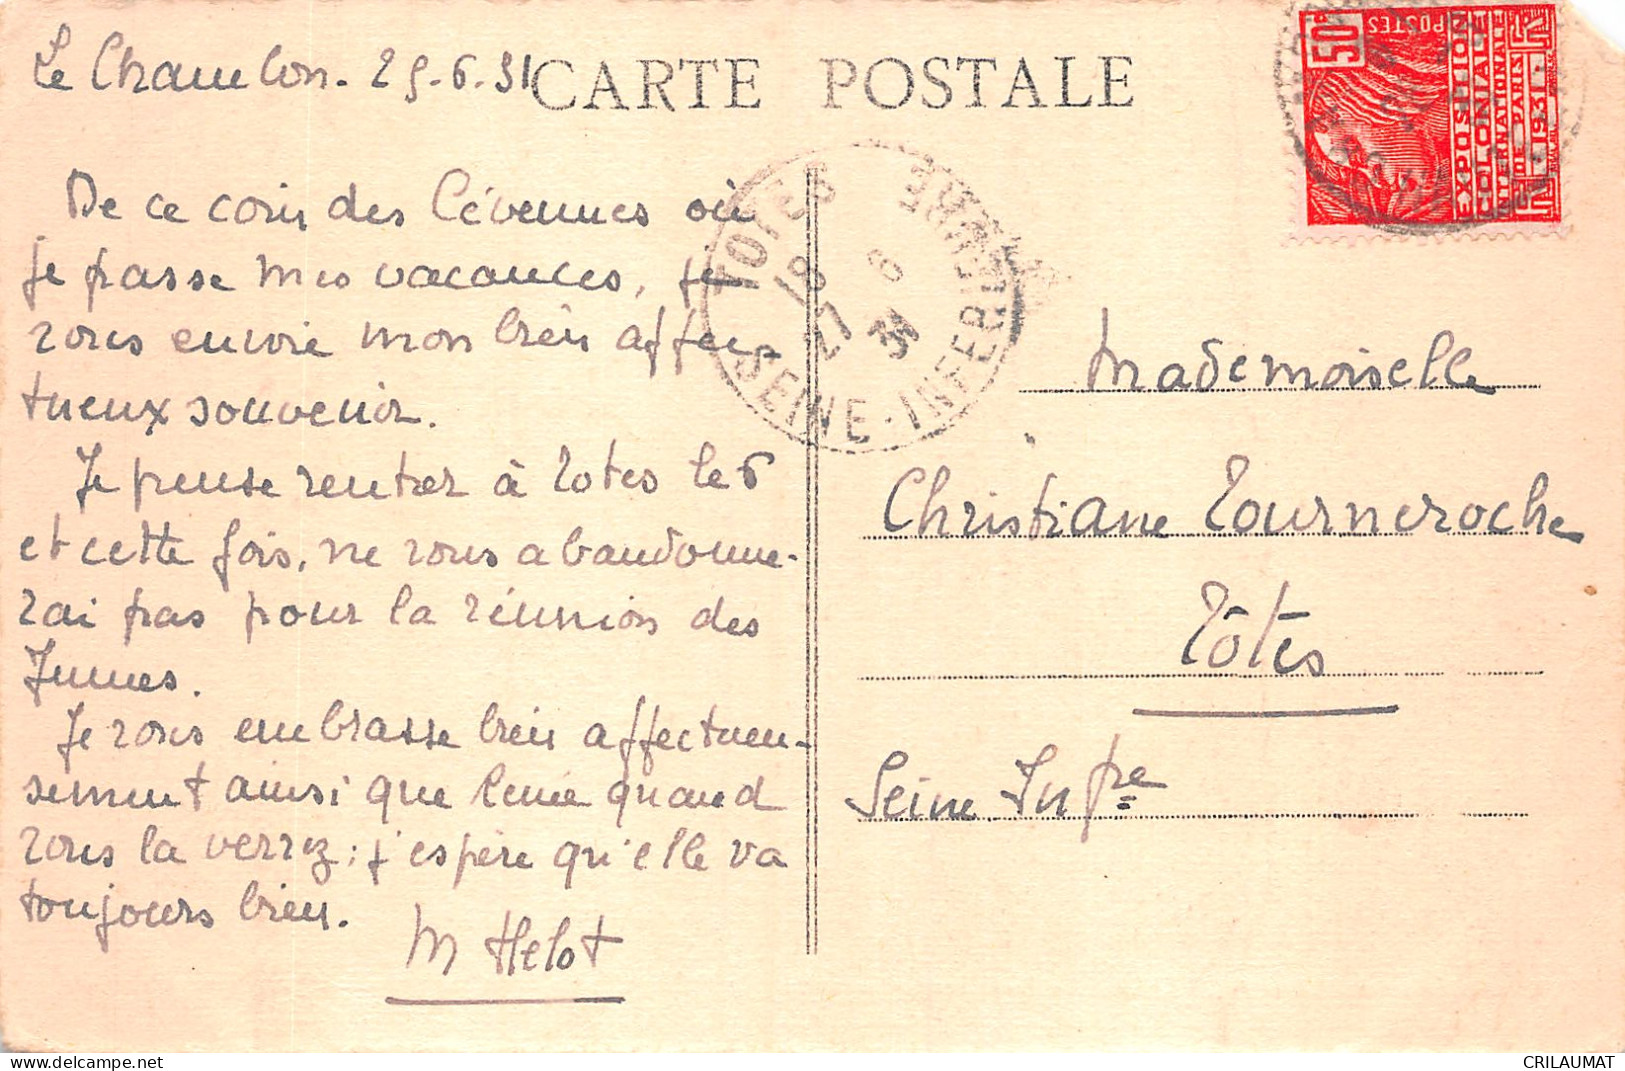 Le Chambon. 25.6.31
CARTE POSTALE
De ce coin des Cévennes où
je passe mes vacances, je
vous envoie mon bien affec-
tueux souvenir.
Je pense rentrer à Totes le 6
et cette fois, ne vous abandonne-
rai pas pour la réunion des
Jeunes.
Je vous embrasse bien affectueu-
sement ainsi que Renée quand
vous la verrez ; j'espère qu'elle va
toujours bien.
M Helot
TOTES
18
27 6
31
SEINE-INFERIEURE
50c
POSTES
EXPOSITION
COLONIALE
INTERNATIONALE
DE PARIS
1931
Mademoiselle
Christiane Tourneroche
Tôtes
Seine Infre
delcampe.net
CRILAUMAT